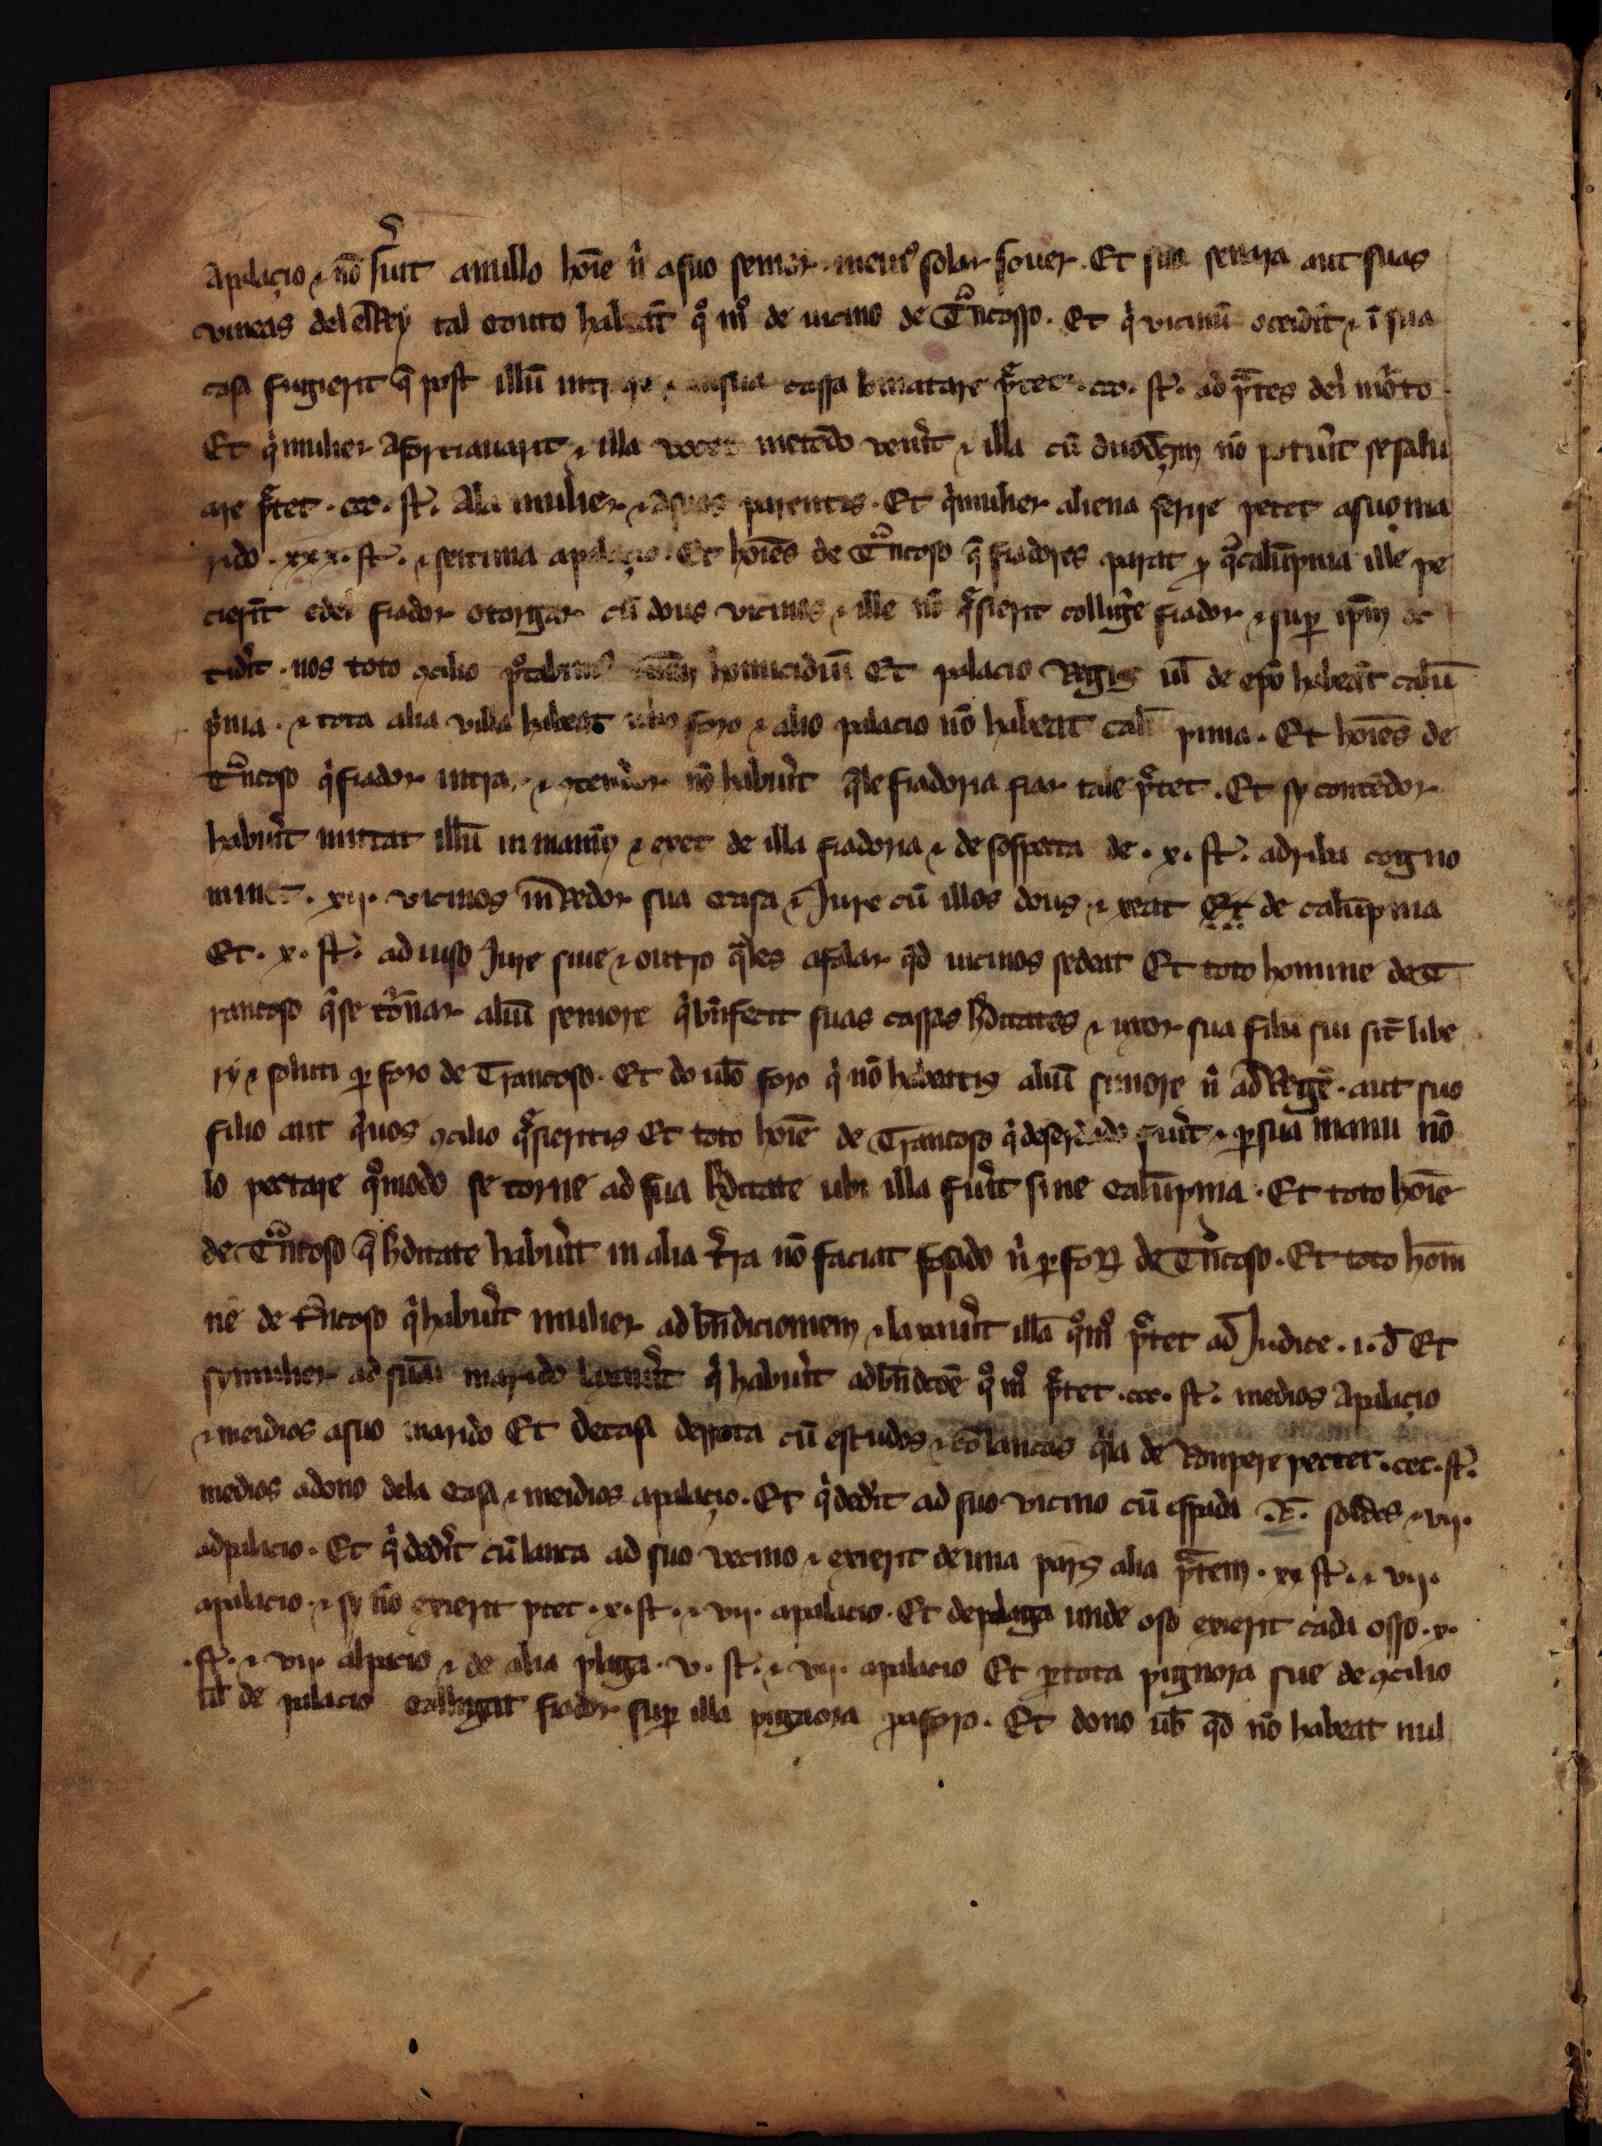 Apalaçio ⁊ nō s̄uit anullo hoīe nı̉ asuo senior incuı9 solar souer. Et sua senara aut suas
vineas del elRey tal couto habeāt qͦ mͦ de uicino de Tͣncosso. Et qͥ vicinū occidit̉ ⁊ ī sua
casa fugierit q̄ post illū ⁊ insua cassa lo matare pͣctet .ccc. st̉. ad pͣtes del mōto
Et qͥ mulier Aforciauarit ⁊ illa metēdo venit̉ ⁊ illa cū duodeçym nō potuit̉ sesalu
are pͣctet .ccc. st̉. Ala mulier ⁊ Asuos parentis. Et qͥ mulier aliena ferire petet asuo ma
rido .xxx. st̉. ⁊ septima apalaçio. Et hoīes de Tͣncoso q̄ fiadores parāt ꝑ qͣ calūpnia ille pe
cierīt edet fiador otorgar cū dous vicinos ⁊ ille nō qͣsierit collige̓ fiador ⁊ suꝑ ip̄m oc
cidit̉. nos toto ꝯcilio pͣctabim9 homicidiū Et palacio Regis ul̄ de ep̄o habeāt calū
pnia. ⁊ tota alia villa habeat foro ⁊ alio palacio nō habeat calū pnia. Et hoīes de
Tͣncoso qͥ fiador intrar ⁊ ꝯtendor nō habuit̉ q̄le fiadoria fiar tale pͣctet. Et sy contēdor
habuit̉ mittat illū in manuȳ ⁊ exet de illa fiadoria ⁊ de sospecta de .x. st̉. adriba cogno
minet .xii. vicinos īn Redor sua casa ⁊ Jure cū illos dous ⁊ xeat Et de calūpnia
Et .x. st̉. ad iuso Jure siue ⁊ outro q̄les afalar qd̄ uicinos sedeat Et toto homine de T
rancoso qͥ se tōnar aliū seniore qͥ bn̄fecit suas cassas h̓ditates ⁊ uxor sua filii sui sīt libe
ry ⁊ soluti ꝑ foro de Trancoso. Et do ub̄o foro qͥ nō habeatis aliū seniore nı̉ ad Regē. aut suo
filio aut qͥ uos ꝯcilio qͣsieritis Et toto hoīe de Trancoso qͥ deserdado fuit̉ ⁊ ꝑ sua manu nō
lo pectare qͦ modo se torne ad sua h̓ditate ubi illa fuit̉ sine calūpnia. Et toto hoīe
de Tͣncoso q̄ h̓ditate habuit̉ in alia t̉ra nō faciat fosado nı̉ ꝑ foꝝ de Tͣncoso. Et toto homī
ne de Tͣncoso qͥ habuit̉ mulier ad bn̄diciomem ⁊ laxauit̉ illā qͦ mͦ pͣctet ad Judice .i. d̄ Et
sy mulier ad suū marido laxauit̉ qͥ habuit̉ ad bn̄dcōē qͦ mͦ pͣctet .ccc. st̉. medios Apalaçio
⁊ meidios asuo marido Et decasa derrota cū escudos ⁊ cō lancas qͥ la de Ronpere pectet .ccc. st̉.
medios adono dela casa ⁊ meidios apalaçio. Et qͥ dedit̉ ad suo vicino cū espada .x̄. soldos ⁊ vii.
adpalacio. Et qͥ dedit̉ cū lanca ad suo vecino ⁊ exierit de una pars alia pͣctem .xx st̉. ⁊ vii.
apalacio. ⁊ sy nō exierit pctet .x. st̉. ⁊ vii. apalacio. Et deplaga unde oso exierit cada osso .x.
.st̉. ⁊ vii. alpacio ⁊ de alia plaga .v. st̉. ⁊ vii. apalacio Et ꝑ tota pignora siue de ꝯcilio
ul̄ de palacio colligat fiador suꝑ illa pignora ꝑ aforo. Et dono ub̄ qd̄ nō habeat nul